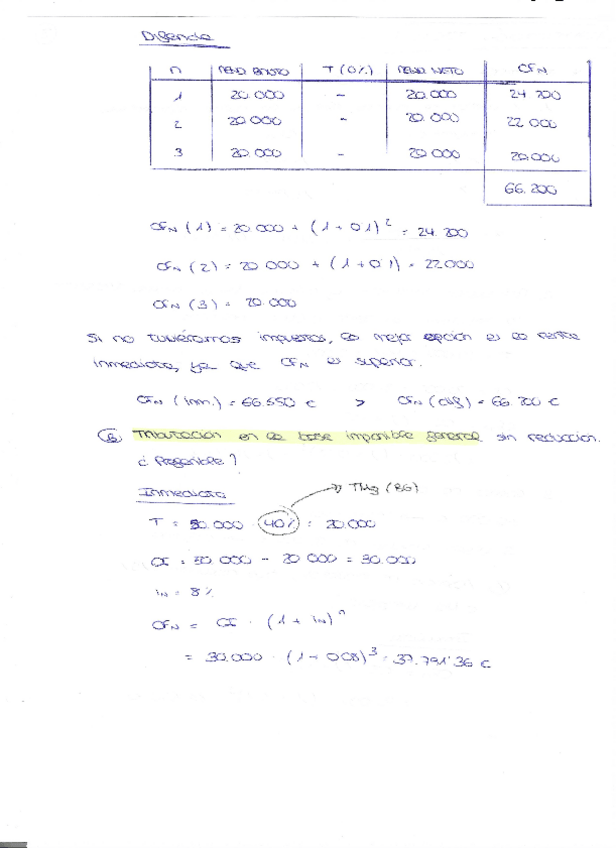 Diferida
n | REND BRUTO | T (0%) | REND NETO | CFN
1 | 20.000 | - | 20.000 | 24.200
2 | 20.000 | - | 20.000 | 22.000
3 | 20.000 | - | 20.000 | 20.000
66.200
CFN (1) = 20.000 + (1+0'1)² = 24.200
CFN (2) = 20.000 + (1+0'1) = 22.000
CFN (3) = 20.000
Si no tuviéramos impuestos, la mejor opción es la renta
inmediata, ya que CFN es superior.
CFN (inm.) = 66.550 € > CFN (dif) = 66.200 €
b) Tributación en la base imponible general sin reducción.
¿Preferible?
Inmediata → TMg (BG)
T = 50.000 · 40% = 20.000
CI = 50.000 - 20.000 = 30.000
iN = 8%
CFN = CI · (1 + iN)ⁿ
= 30.000 · (1+0'08)³ = 37.791'36 €